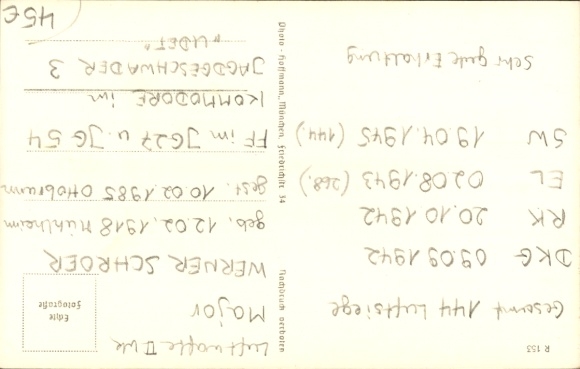 R 153
Gesamt 144 Luftsiege
DKG 09.09.1942
RK 20.10.1942
EL 02.08.1943 (268.)
SW 19.04.1945 (144.)
Sehr gute Erhaltung
Nachdruck verboten
Photo - Hoffmann, München, Friedrichstr. 34
Echte
Fotografie
Luftwaffe II WK
Major
WERNER SCHROER
geb. 12.02.1918 Mühlheim
gest. 10.02.1985 Ottobrunn
FF im JG27 u. JG 54
KOMMODORE im
JAGDGESCHWADER 3
"UDET"
45€